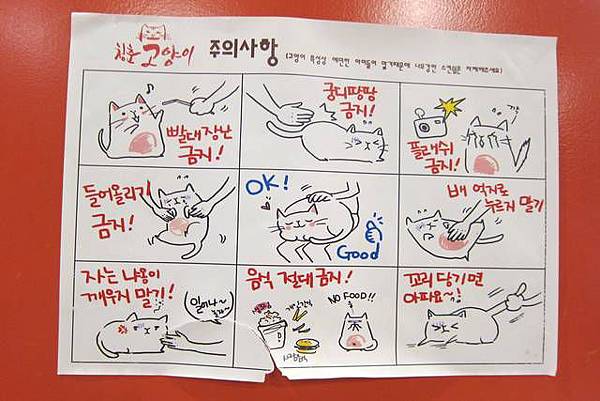 청춘 고양이 주의사항
(고양이 특성상 예민한 아이들이 많기때문에 너무강한 스킨쉽은 자제해주세요)
빨대장난
금지!
궁디팡팡
금지!
플래쉬
금지!
들어올리기
금지!
OK!
Good
배 억지로
누르지 말기
자는 냐옹이
깨우지 말기!
일어나~
음식 절대금지!
NO FOOD!!
꼬리 당기면
아파요~!